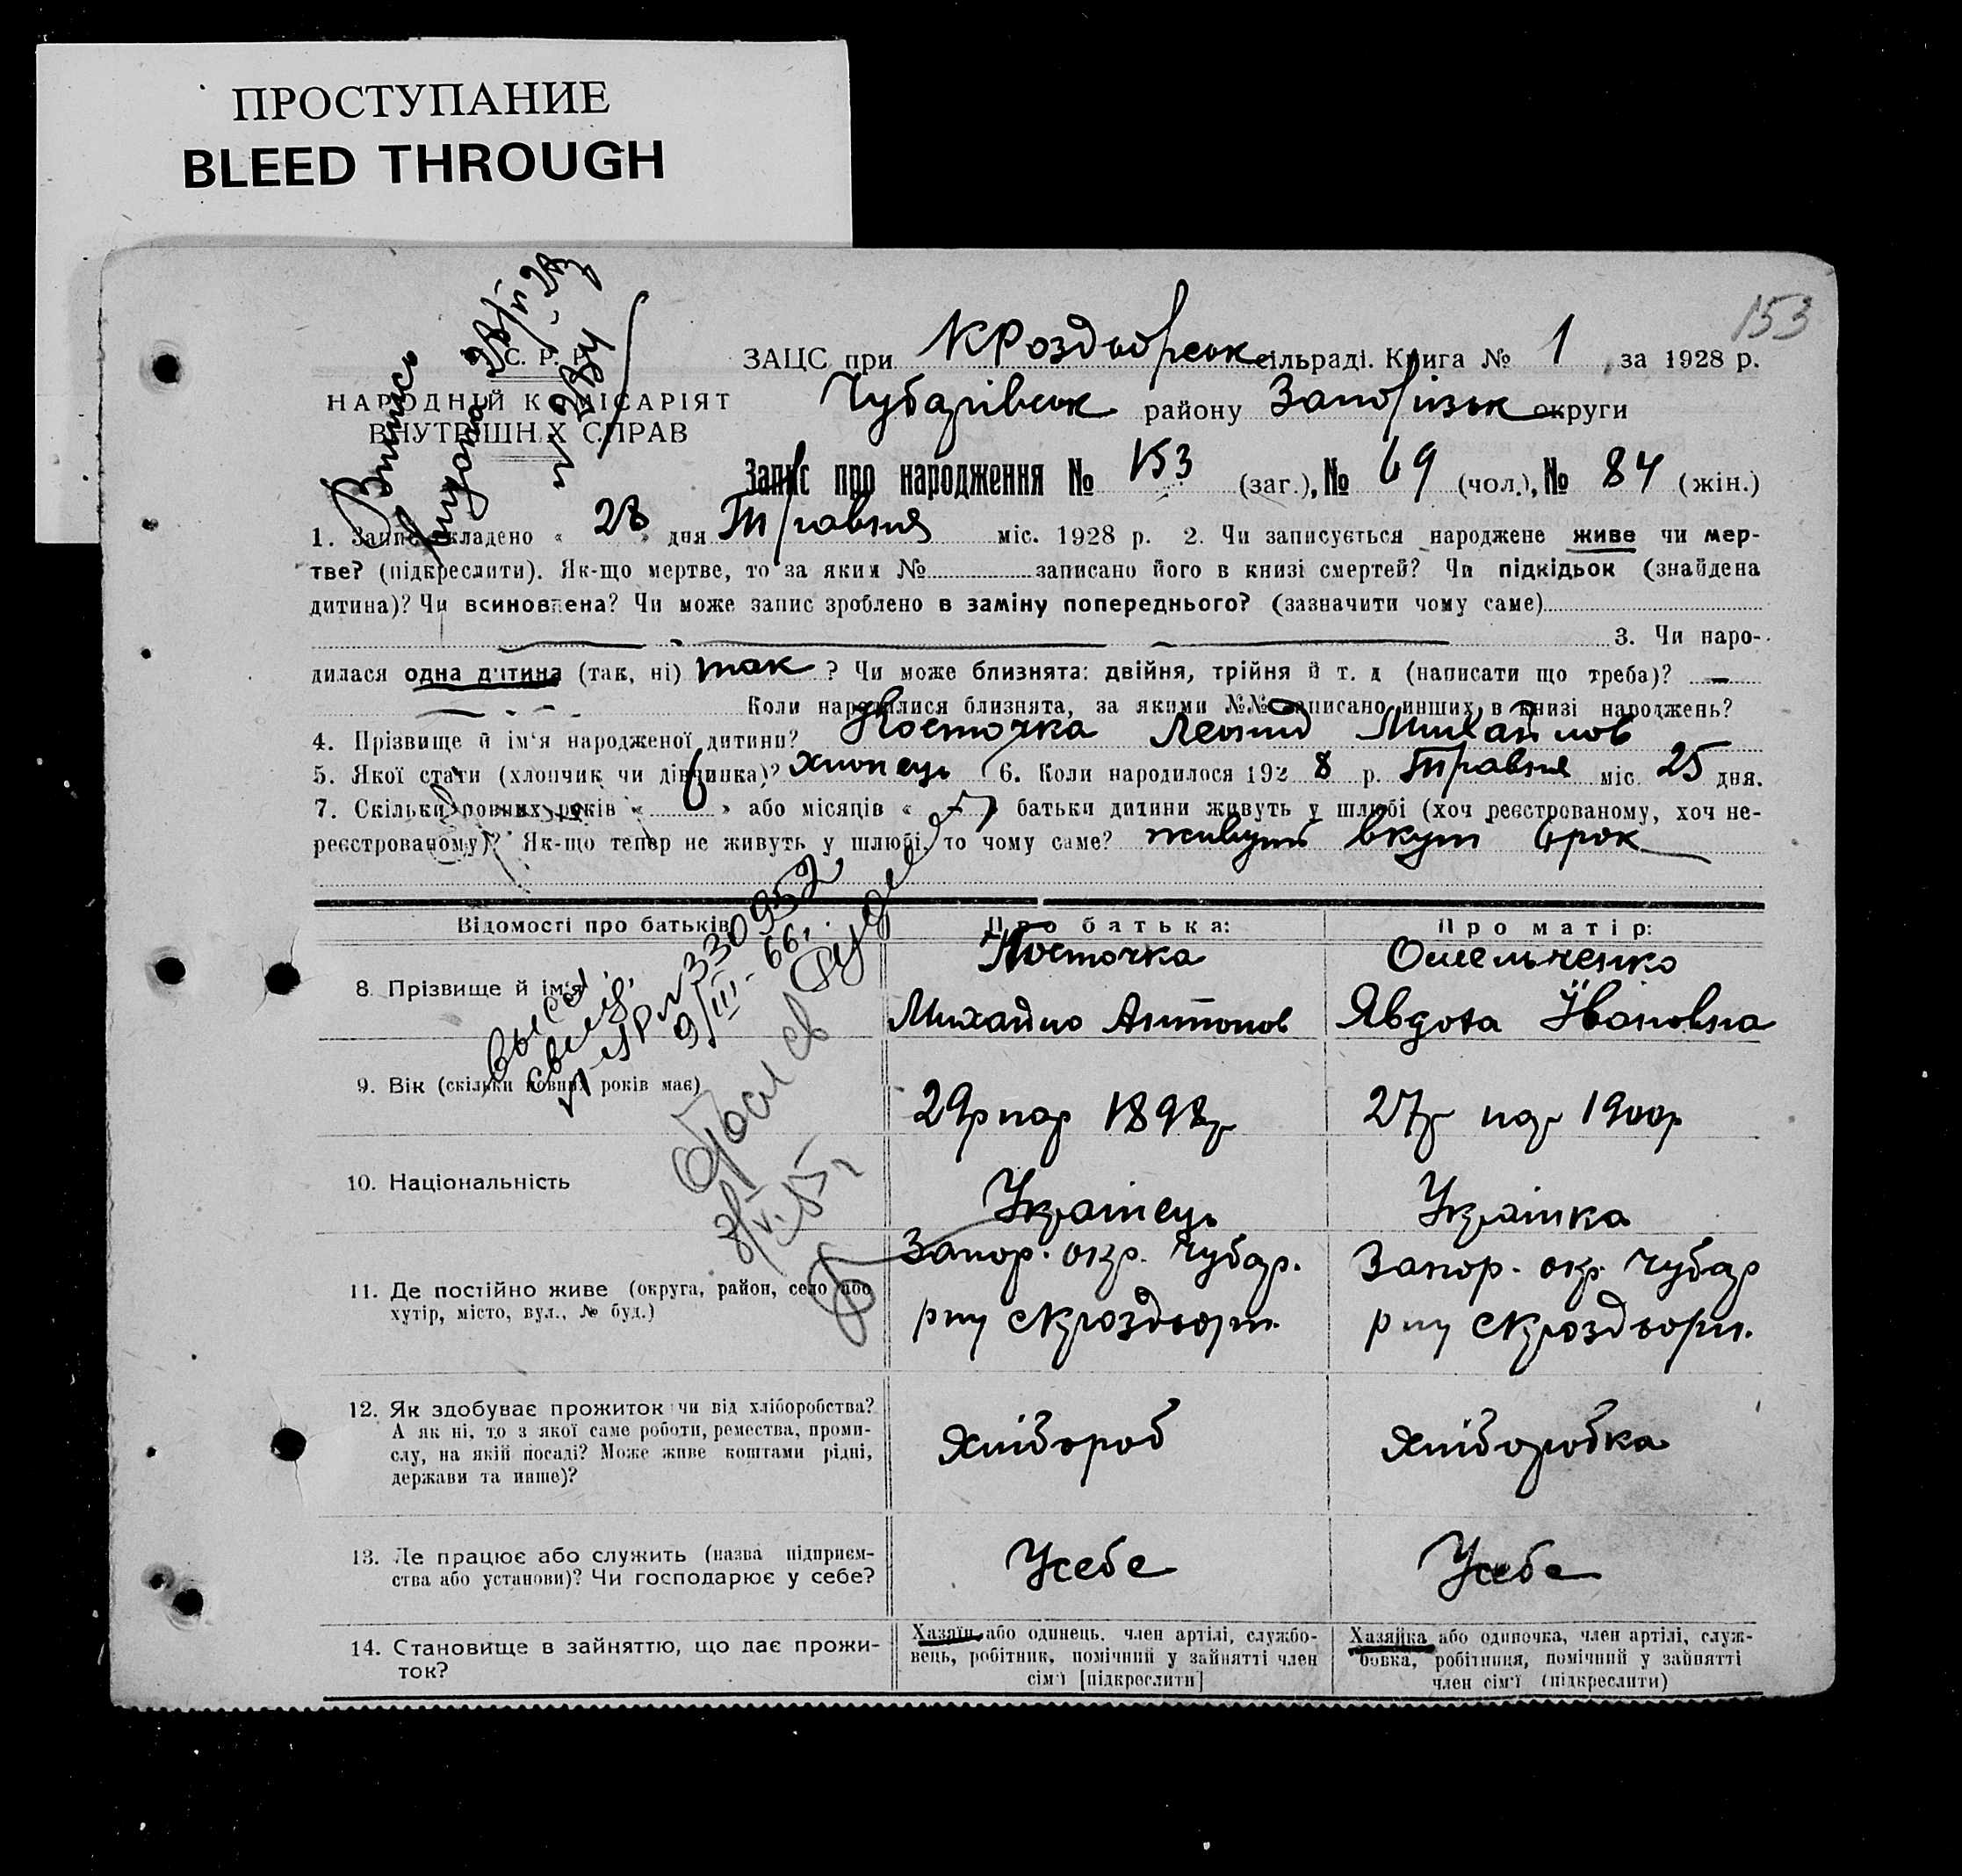 ПРОСТУПАНИЕ
BLEED THROUGH
153
С. Р. Р.
НАРОДНІЙ КОМІСАРІЯТ
ВНУТРІШНІХ СПРАВ
Випись
видана
ЗАЦС при КРоздорськ сільраді. Книга № 1, за 1928 р.
Чубарівськ району Запоріжськ округи
Запис про народження № 153 (заг.), № 69 (чол.), № 84 (жін.)
1. Запис складено « 28 » дня Травня міс. 1928 р. 2. Чи записується народжене живе чи мер-
тве? (підкреслити). Як-що мертве, то за яким № записано його в книзі смертей? Чи підкідьок (знайдена
дитина)? Чи всиновлена? Чи може запис зроблено в заміну попереднього? (зазначити чому саме)
3. Чи наро-
дилася одна дитина (так, ні) так ? Чи може близнята: двійня, трійня й т. д (написати що треба)? —
Коли народилися близнята, за якими №№ записано инших в книзі народжень?
4. Прізвище й ім'я народженої дитини? Косточка Леонид Михайлов
5. Якої стати (хлопчик чи дівчинка)? Хлопець 6. Коли народилося 1928 р. Травня міс. 25 дня.
7. Скільки повних років « 6 » або місяців « » батьки дитини живуть у шлюбі (хоч реєстрованому, хоч не-
реєстрованому)? Як-що тепер не живуть у шлюбі, то чому саме? живуть вкуп 6рок
Відомості про батьків Про батька: Про матір:
8. Прізвище й ім'я Косточка Омельченко
Михайло Антонов Явдоха Ївановна
9. Вік (скільки повних років має) 29р нар 1898р 27р нар 1900р
10. Національність Українець Українка
11. Де постійно живе (округа, район, село або
хутір, місто, вул., № буд.)
Запор. окр. Чубар. Запор. окр. Чубар
рну сКроздорн. рну сКроздорн.
12. Як здобуває прожиток чи від хліборобства?
А як ні, то з якої саме роботи, ремества, проми-
слу, на якій посаді? Може живе коштами рідні,
держави та инше)?
Хлібороб Хліборобка
13. Де працює або служить (назва підприєм-
ства або установи)? Чи господарює у себе?
Усебе Усебе
14. Становище в зайняттю, що дає прожи-
ток?
Хазяїн або одинець, член артілі, службо-
вець, робітник, помічний у зайнятті член
сім'ї [підкреслити]
Хазяйка або одиночка, член артілі, служ-
бовка, робітниця, помічний у зайнятті
член сім'ї (підкреслити)
330952
9/III-66г.